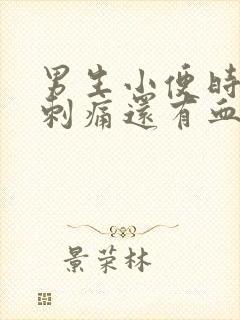 男生小便時
刺痛還有血
景荣林